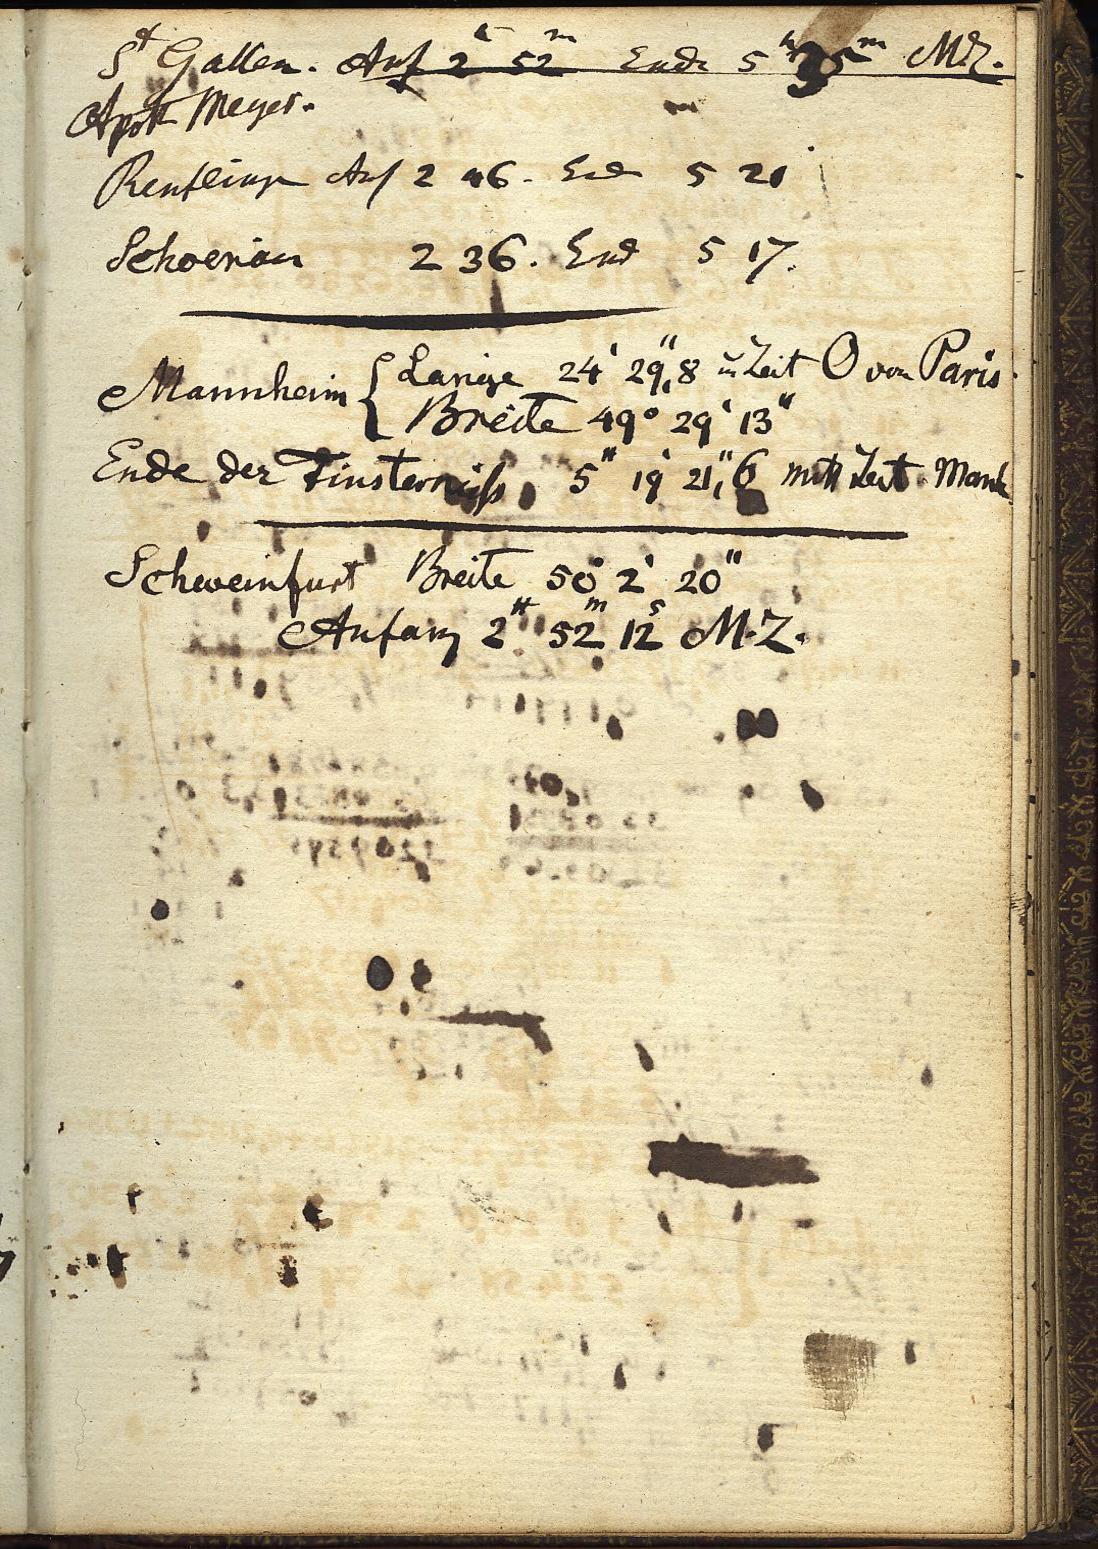 St Gallen. Anf 2h 52m Ende 5h 35m M.Z.
Apoth Meyer.
Reutlingen Anf 2 46. End 5 21
2 36. End 5 17.
Mannheim { Länge 24' 29",8 in Zeit O von Paris
Breite 49° 29' 13"
Ende der Finsterniss 5" 19' 21",6 mittl Zeit. Manh.
Schweinfurt Breite 50° 2' 20"
Anfang 2H 52m 12s M.Z.